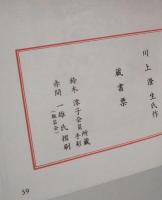 川上澄生氏作
蔵書票
鈴木淳子会員所蔵
会員手彩
赤間一雄氏摺刷
(版芸会)
59